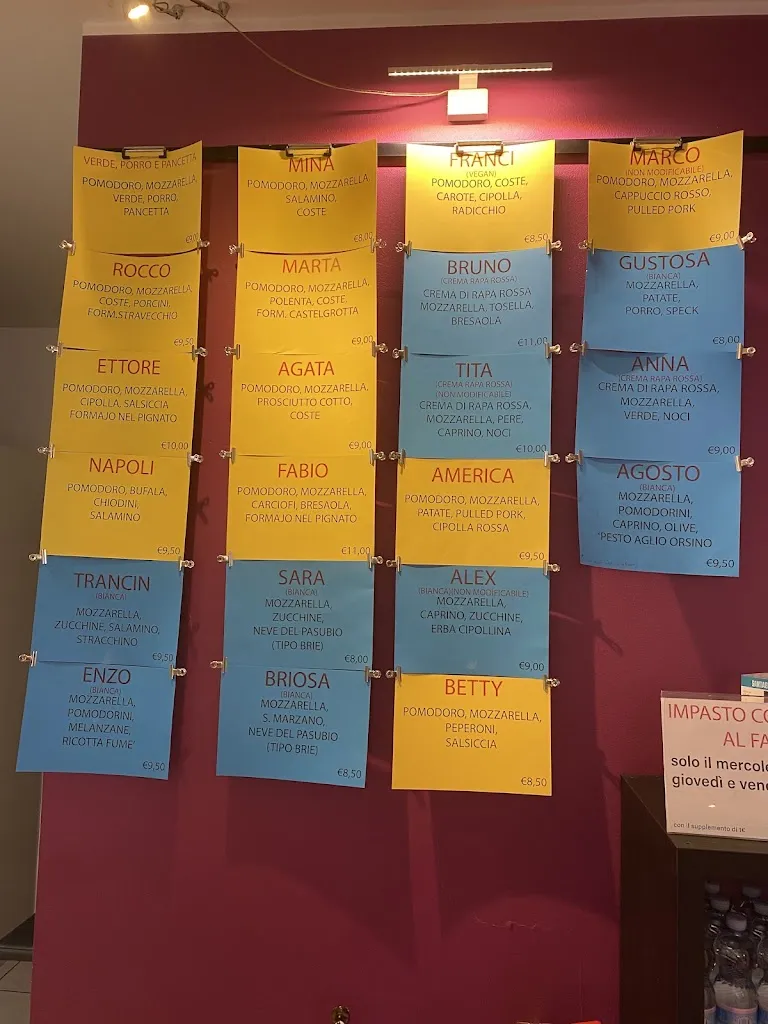 VERDE, PORRO E PANCETTA
POMODORO, MOZZARELLA,
VERDE, PORRO,
PANCETTA
ROCCO
POMODORO, MOZZARELLA,
COSTE, PORCINI,
FORM.STRAVECCHIO
€9,50
ETTORE
POMODORO, MOZZARELLA,
CIPOLLA, SALSICCIA
FORMAJO NEL PIGNATO
€10,00
NAPOLI
POMODORO, BUFALA,
CHIODINI,
SALAMINO
€9,50
TRANCIN
(BIANCA)
MOZZARELLA,
ZUCCHINE, SALAMINO,
STRACCHINO
€9,50
ENZO
(BIANCA)
MOZZARELLA,
POMODORINI,
MELANZANE,
RICOTTA FUME'
€9,50
MINA
POMODORO, MOZZARELLA,
SALAMINO,
COSTE
€8,00
MARTA
POMODORO, MOZZARELLA,
POLENTA, COSTE,
FORM. CASTELGROTTA
€9,00
AGATA
POMODORO, MOZZARELLA,
PROSCIUTTO COTTO,
COSTE
€9,00
FABIO
POMODORO, MOZZARELLA,
CARCIOFI, BRESAOLA,
FORMAJO NEL PIGNATO
€11,00
SARA
(BIANCA)
MOZZARELLA,
ZUCCHINE,
NEVE DEL PASUBIO
(TIPO BRIE)
€8,00
BRIOSA
(BIANCA)
MOZZARELLA,
S. MARZANO,
NEVE DEL PASUBIO
(TIPO BRIE)
€8,50
FRANCI
(VEGAN)
POMODORO, COSTE,
CAROTE, CIPOLLA,
RADICCHIO
€8,50
BRUNO
(CREMA RAPA ROSSA)
CREMA DI RAPA ROSSA
MOZZARELLA, TOSELLA,
BRESAOLA
€11,00
TITA
(CREMA RAPA ROSSA)
(NON MODIFICABILE)
CREMA DI RAPA ROSSA,
MOZZARELLA, PERE,
CAPRINO, NOCI
€10,00
AMERICA
POMODORO, MOZZARELLA,
PATATE, PULLED PORK,
CIPOLLA ROSSA
€9,50
ALEX
(BIANCA)(NON MODIFICABILE)
MOZZARELLA,
CAPRINO, ZUCCHINE,
ERBA CIPOLLINA
€9,00
BETTY
POMODORO, MOZZARELLA,
PEPERONI,
SALSICCIA
€8,50
MARCO
(NON MODIFICABILE)
POMODORO, MOZZARELLA,
CAPPUCCIO ROSSO,
PULLED PORK
€9,00
GUSTOSA
(BIANCA)
MOZZARELLA,
PATATE,
PORRO, SPECK
€8,00
ANNA
(CREMA RAPA ROSSA)
CREMA DI RAPA ROSSA,
MOZZARELLA,
VERDE, NOCI
€9,00
AGOSTO
(BIANCA)
MOZZARELLA,
POMODORINI,
CAPRINO, OLIVE,
*PESTO AGLIO ORSINO
€9,50
IMPASTO CO
AL FA
solo il mercole
giovedì e vene
con il supplemento di 1€